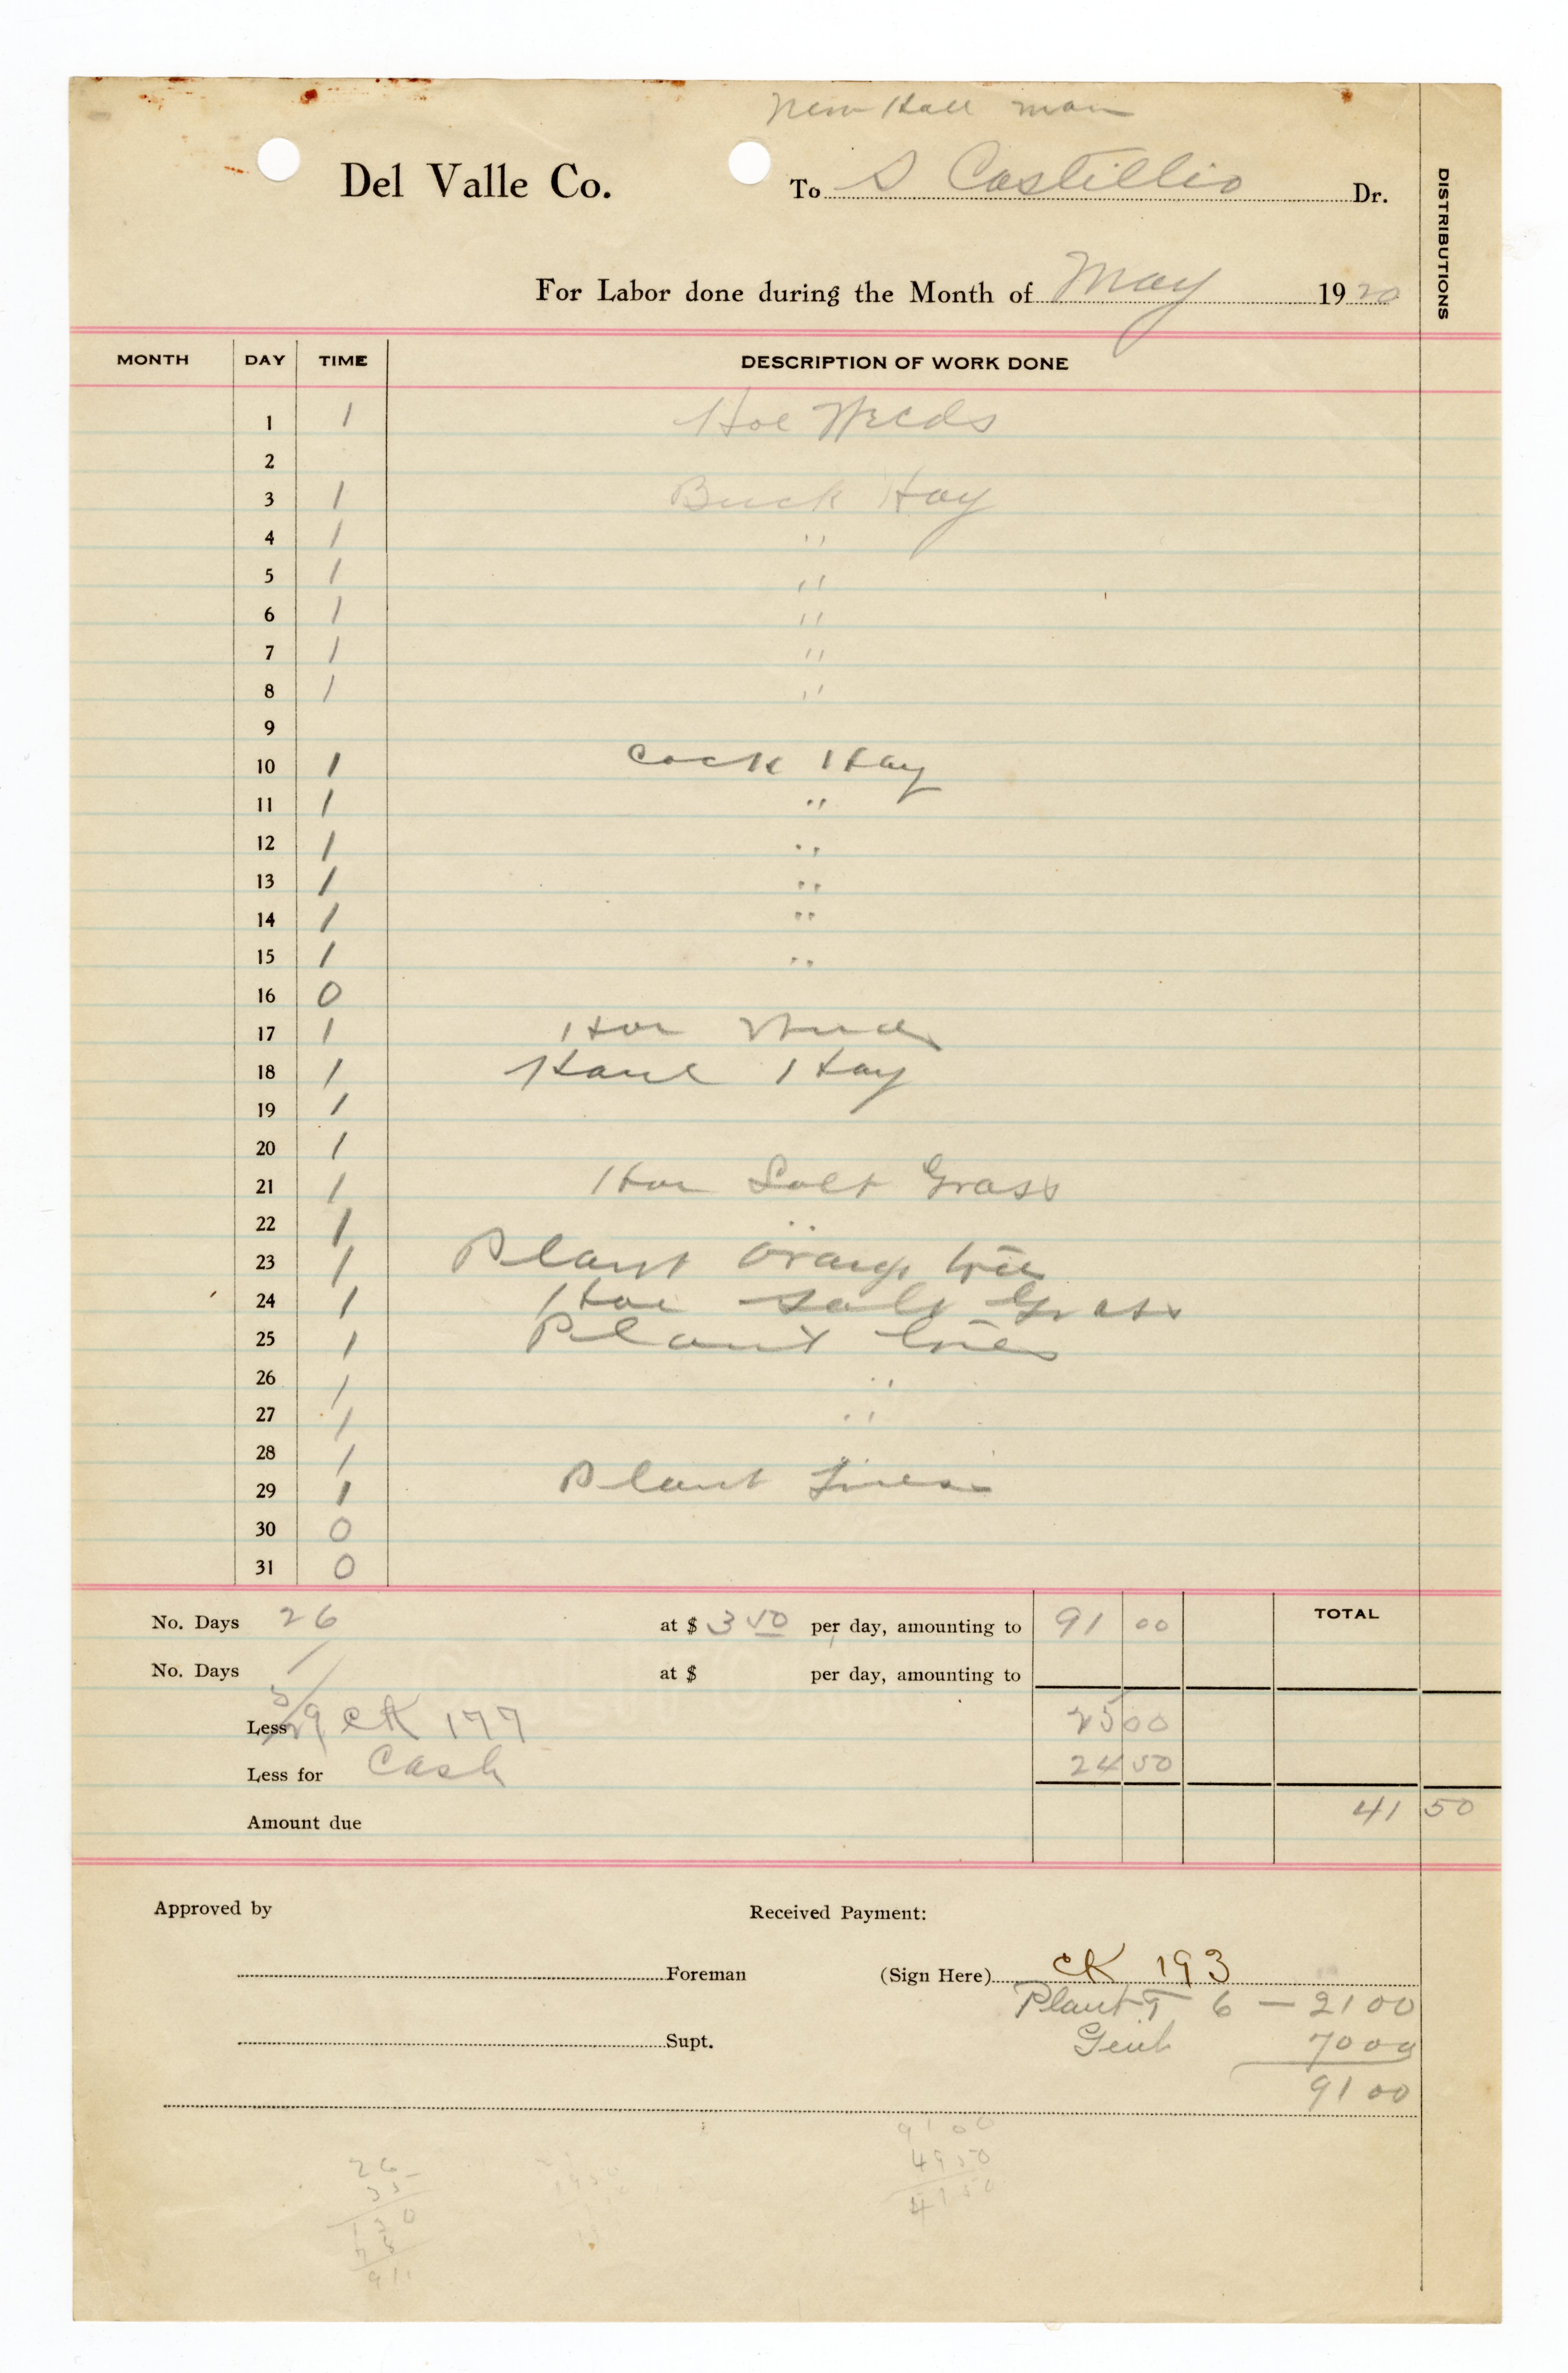 New Hall man
Del Valle Co. To S Castillio Dr.
DISTRIBUTIONS
For Labor done during the Month of May 1920
MONTH DAY TIME DESCRIPTION OF WORK DONE
1 1 Hoe Weeds
2
3 1 Buck Hay
4 1 "
5 1 "
6 1 "
7 1 "
8 1 "
9
10 1 Cock Hay
11 1 "
12 1 "
13 1 "
14 1 "
15 1 "
16 0
17 1 Hoe Weeds
18 1 Haul Hay
19 1
20 1
21 1 Hoe Salt Grass
22 1 "
23 1 Plant Orange trees
24 1 Hoe Salt Grass
25 1 Plant trees
26 1 "
27 1 "
28 1
29 1 Plant Trees
30 0
31 0
No. Days 26 at $ 3 50 per day, amounting to 91 00 TOTAL
No. Days at $ per day, amounting to
Less 5/29 CK 177 25 00
Less for Cash 24 50
Amount due 41 50
Approved by Received Payment:
Foreman (Sign Here) CK 193
Plant T 6 — 21 00
Supt. Genl 70 00
91 00
26
35
130
78
91
91 00
49 50
41 50